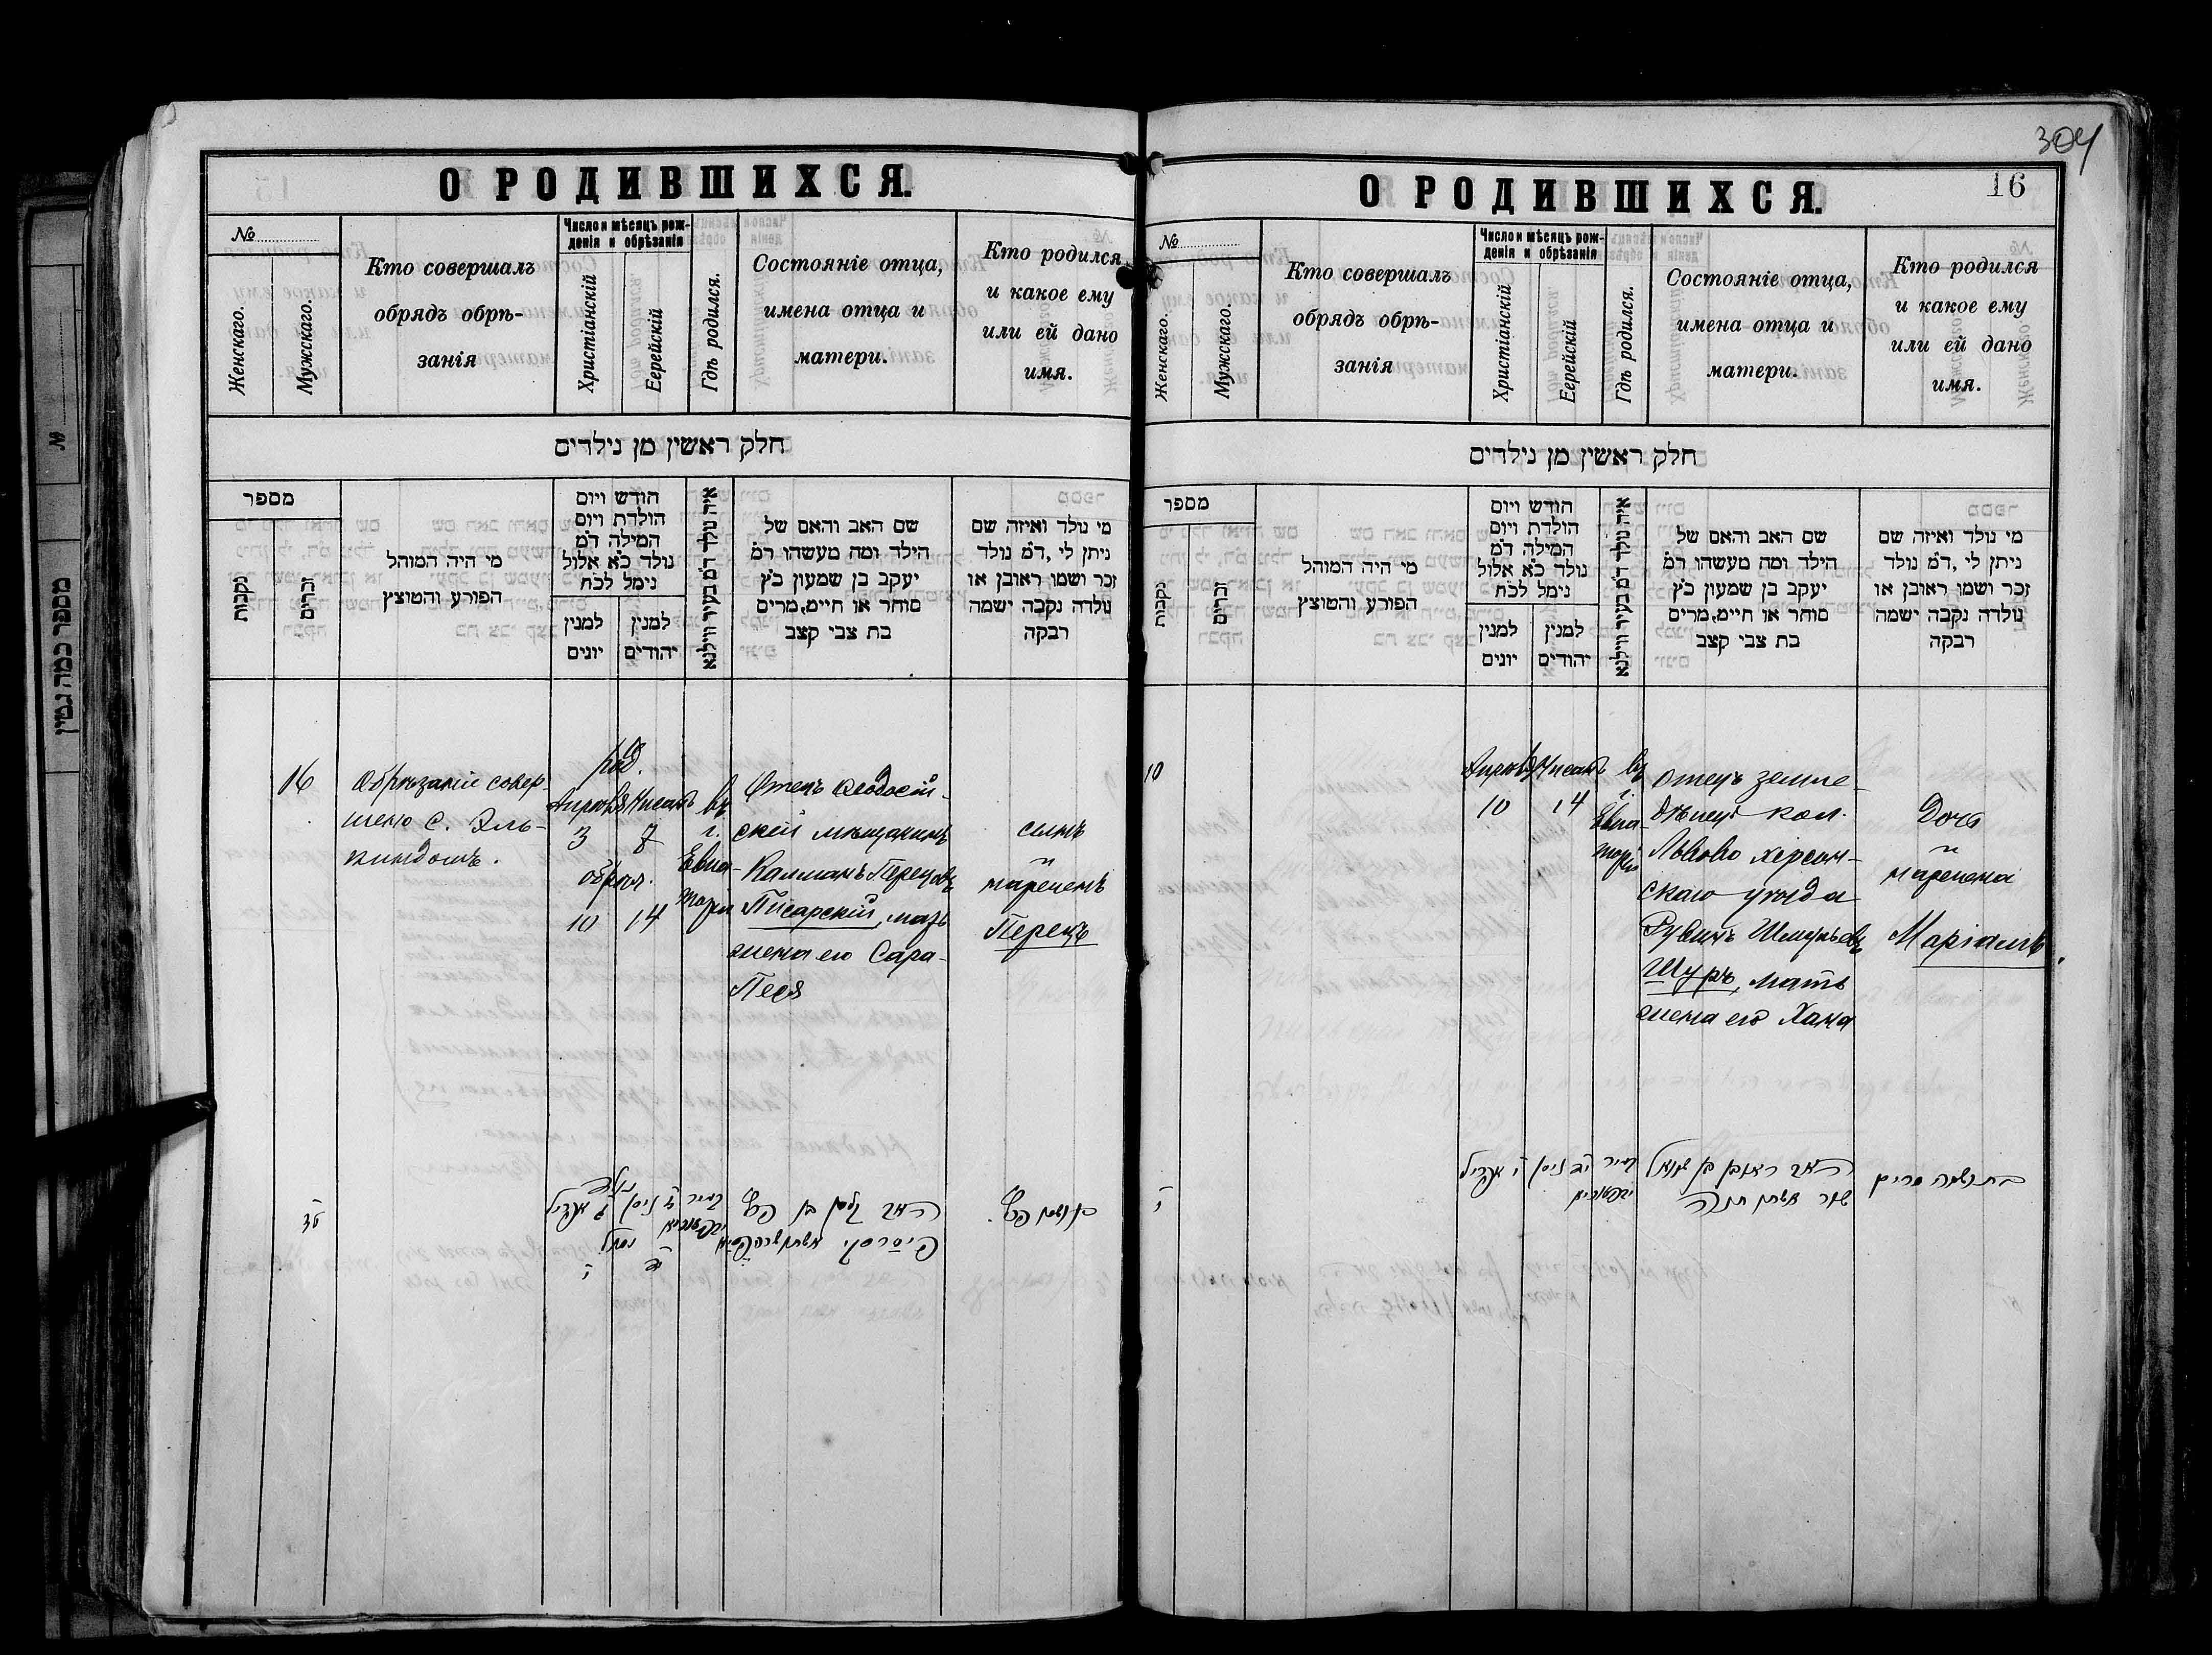 304
О РОДИВШИХСЯ.
№
Женскаго.
Мужскаго.
Кто совершалъ
обрядъ обрѣ-
занія
Число и мѣсяцъ рож-
денія и обрѣзанія
Христіанскій
Еврейскій
Гдѣ родился.
Состояніе отца,
имена отца и
матери.
Кто родился
и какое ему
или ей дано
имя.
חלק ראשין מן נילדים
מספר
נקבות
זכרים
מי היה המוהל
הפורע והמוצץ
חודש ויום
הולדת ויום
המילה דמ
נולד כא אלול
נימל לכח
למנין
יונים
למנין
יהודים
איה נולד דמ בעיר ווילנא
שם האב והאם של
הילד ומה מעשהו דמ
יעקב בן שמעון כץ
סוחר או חיים, מרים
בת צבי קצב
מי נולד ואיזה שם
ניתן לי, דמ נולד
זכר ושמו ראובן או
נולדה נקבה ישמה
רבקה
16
Обрѣзаніе совер-
шено С. Эль-
киндомъ.
род.
Апрѣля Нисанъ
3 7
обрѣз.
10 14
въ
г.
Евпа-
торіи
Отецъ Ѳеодосій-
скій мѣщанинъ
Калманъ Перецовъ
Писарскій, мать
жена его Сара-
Песя
сынъ
нареченъ
Перецъ
О РОДИВШИХСЯ.
16
№
Женскаго.
Мужскаго.
Кто совершалъ
обрядъ обрѣ-
занія
Число и мѣсяцъ рож-
денія и обрѣзанія
Христіанскій
Еврейскій
Гдѣ родился.
Состояніе отца,
имена отца и
матери.
Кто родился
и какое ему
или ей дано
имя.
חלק ראשין מן נילדים
מספר
נקבות
זכרים
מי היה המוהל
הפורע והמוצץ
חודש ויום
הולדת ויום
המילה דמ
נולד כא אלול
נימל לכח
למנין
יונים
למנין
יהודים
איה נולד דמ בעיר ווילנא
שם האב והאם של
הילד ומה מעשהו דמ
יעקב בן שמעון כץ
סוחר או חיים, מרים
בת צבי קצב
מי נולד ואיזה שם
ניתן לי, דמ נולד
זכר ושמו ראובן או
נולדה נקבה ישמה
רבקה
10
Апрѣля Нисанъ
10 14
въ
г.
Евпа-
торіи
Отецъ земле-
дѣлецъ кол.
Львово херсон-
скаго уѣзда
Рувинъ Шмульевъ
Шуръ, мать
жена его Хана
Дочь
наречена
Маріамъ
№
מספר כמה גטין